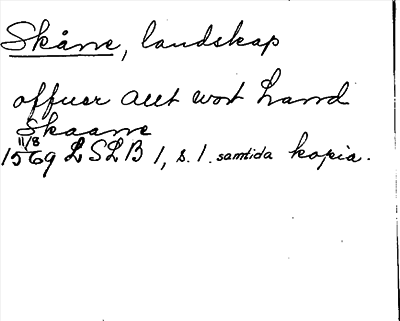 Skåne, landskap
offuer allt wort Land
Skaane
11/8
1569 LSLB 1, s. 1. samtida kopia.